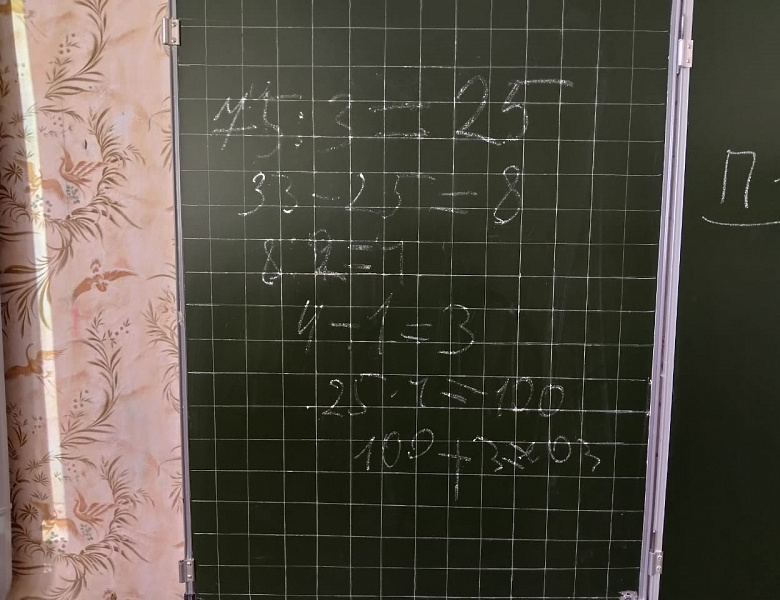 75:3=25
33-25=8
8:2=4
4-1=3
25·4=100
100+3=103
П